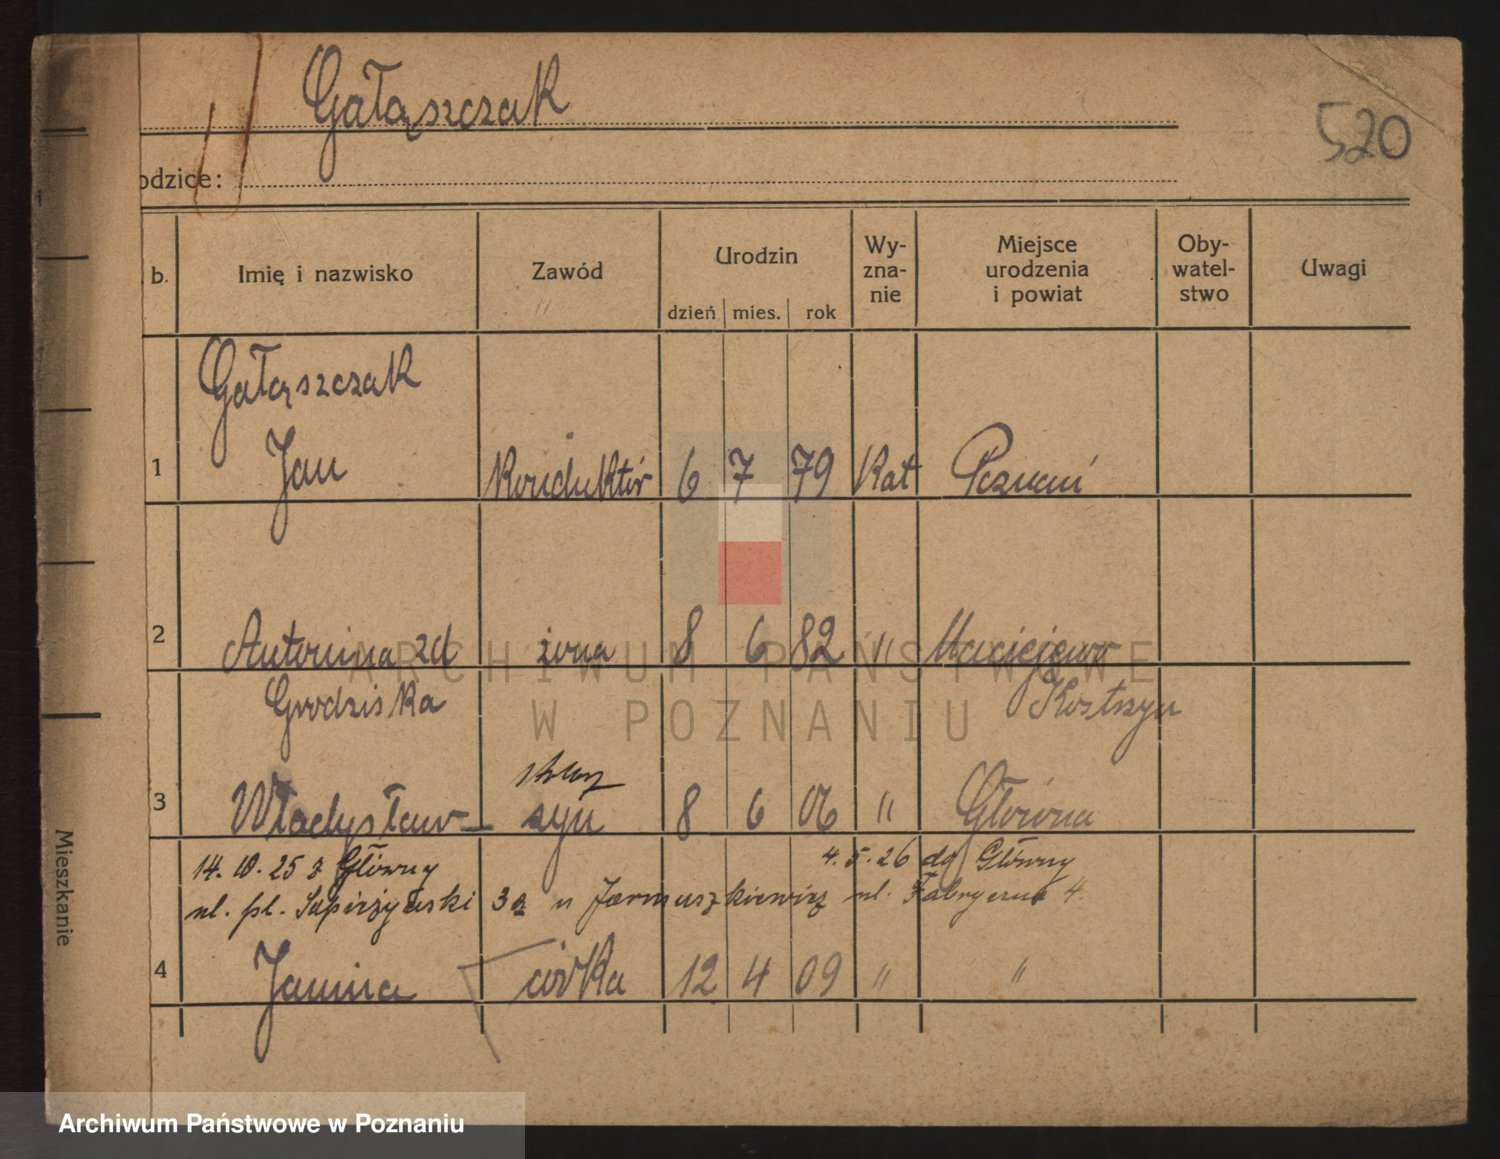 Gałąszczak
520
odzice:
b. Imię i nazwisko Zawód Urodzin dzień mies. rok Wy-zna-nie Miejsce urodzenia i powiat Oby-watel-stwo Uwagi
Gałąszczak
1 Jan Konduktór 6 7 79 Kat Poznań
2 Antonina zd żona 8 6 82 " Maciejewo
Grodziska Kostrzyn
3 Władysław syn 8 6 06 " Główna
14. 10. 25 z Główny 4. 5. 26 do Główny
ul. pl. Sapieżyński 3a u Jarmuszkiewicz ul. Fabryczna 4.
4 Janina córka 12 4 09 " "
Mieszkanie
ARCHIWUM PAŃSTWOWE
W POZNANIU
Archiwum Państwowe w Poznaniu